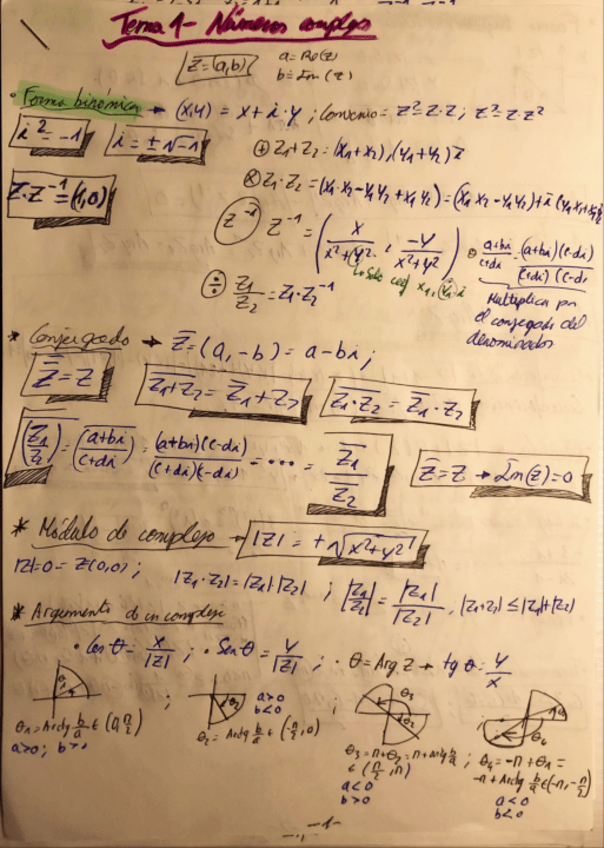 Tema 1 - Números complejos
Z=(a,b) a=Re(z)
b=Im(z)
• Forma binómica → (x,y) = x+i·y ; Convenio = z²=z·z ; z³=z·z²
i²=-1 i=±√-1
⊕ Z1+Z2 = (x1+x2),(y1+y2)i
Z·Z⁻¹=(1,0) ⊗ Z1·Z2 = (x1·x2-y1y2+x1y2) = (x1x2-y1y2)+i(y1x2+x1y2
Z⁻¹ Z⁻¹ = (x/(x²+y²), -y/(x²+y²)) (a+bi)/(c+di) = (a+bi)(c-di)/(c+di)(c-di
↳ Solo coef x1, y1·i
÷ Z1/Z2 = Z1·Z2⁻¹
Multiplica por
el conjugado del
denominador
* Conjugado → Z̅=(a,-b) = a-bi ;
Z̿=Z Z1+Z2 = Z̅1+Z̅2 Z1·Z2 = Z̅1·Z̅2
(Z1/Z2) = ((a+bi)/(c+di)) = (a+bi)(c-di)/(c+di)(c-di) = ···· = Z̅1/Z̅2 Z̅=Z → Im(z)=0
* Módulo de complejo → |Z| = +√(x²+y²)
|Z|=0 = Z(0,0) ; |Z1·Z2|=|Z1||Z2| ; |Z1/Z2| = |Z1|/|Z2| , |Z1+Z2| ≤ |Z1|+|Z2|
* Argumento de un complejo
• Cos θ = x/|Z| ; • Sen θ = y/|Z| ; • θ = Arg Z → tg θ = y/x
θ1 = Arctg b/a ∈ (0, π/2)
a>0 ; b>0
;
a>0
b<0
θ2 = Arctg b/a ∈ (-π/2, 0)
;
θ3
θ2
θ3 = π+θ2 = π+arctg b/a ;
∈ (π/2, π)
a<0
b>0
θ4
θ4 = -π+θ1 =
-π+Arctg b/a ∈ (-π, -π/2)
a<0
b<0
-1-